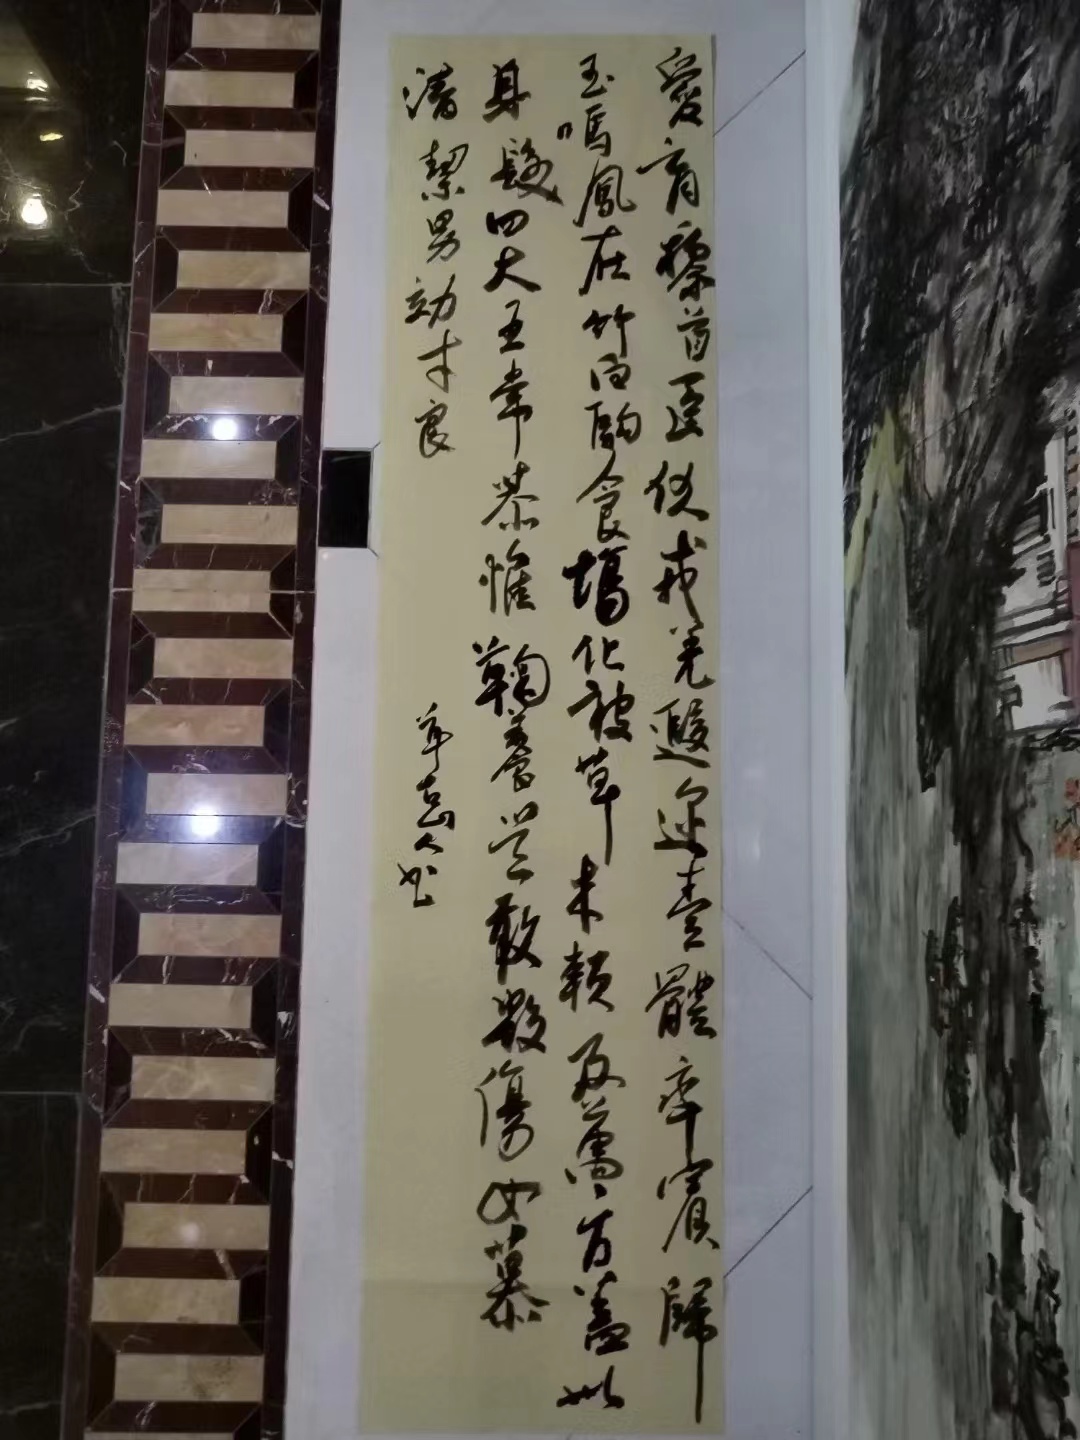 愛育黎首臣伏戎羌遐邇壹體率賓歸
王鳴鳳在竹白駒食場化被草木賴及萬方蓋此
身髮四大五常恭惟鞠養豈敢毀傷女慕
清絜男効才良
人书